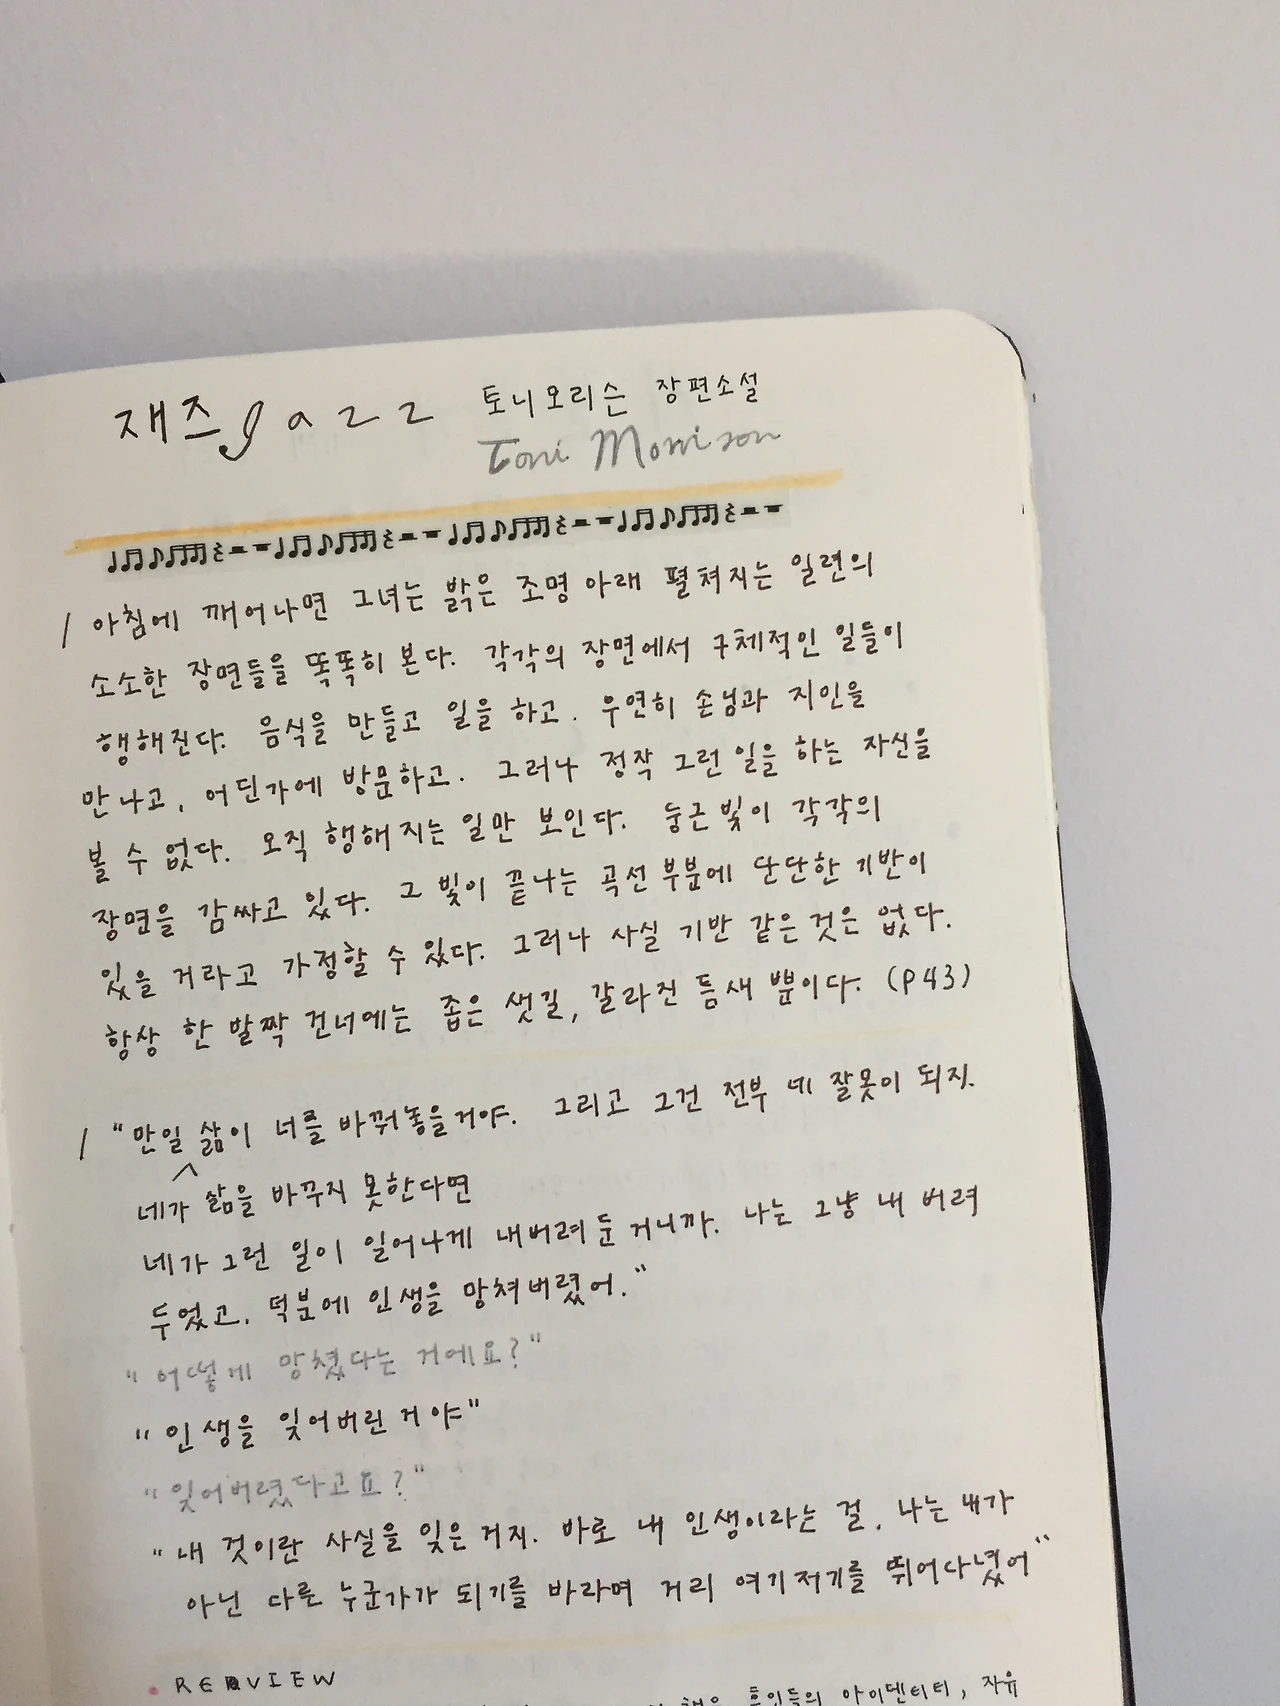 재즈 Jazz 토니모리슨 장편소설
Toni Morrison
/ 아침에 깨어나면 그녀는 밝은 조명 아래 펼쳐지는 일련의
소소한 장면들을 똑똑히 본다. 각각의 장면에서 구체적인 일들이
행해진다. 음식을 만들고 일을 하고. 우연히 손님과 지인을
만나고, 어딘가에 방문하고. 그러나 정작 그런 일을 하는 자신을
볼 수 없다. 오직 행해지는 일만 보인다. 둥근 빛이 각각의
장면을 감싸고 있다. 그 빛이 끝나는 곡선 부분에 단단한 기반이
있을 거라고 가정할 수 있다. 그러나 사실 기반 같은 것은 없다.
항상 한 발짝 건너에는 좁은 샛길, 갈라진 틈새 뿐이다. (P43)
/ "만일 삶이 너를 바꿔놓을거야. 그리고 그건 전부 네 잘못이 되지.
네가 삶을 바꾸지 못한다면
네가 그런 일이 일어나게 내버려 둔 거니까. 나는 그냥 내 버려
두었고. 덕분에 인생을 망쳐버렸어."
"어떻게 망쳤다는 거에요?"
"인생을 잊어버린거야"
"잊어버렸다고요?"
"내 것이란 사실을 잊은 거지. 바로 내 인생이라는 걸. 나는 내가
아닌 다른 누군가가 되기를 바라며 거리 여기저기를 뛰어다녔어"
REVIEW
책은 흑인들의 아이덴티티, 자유